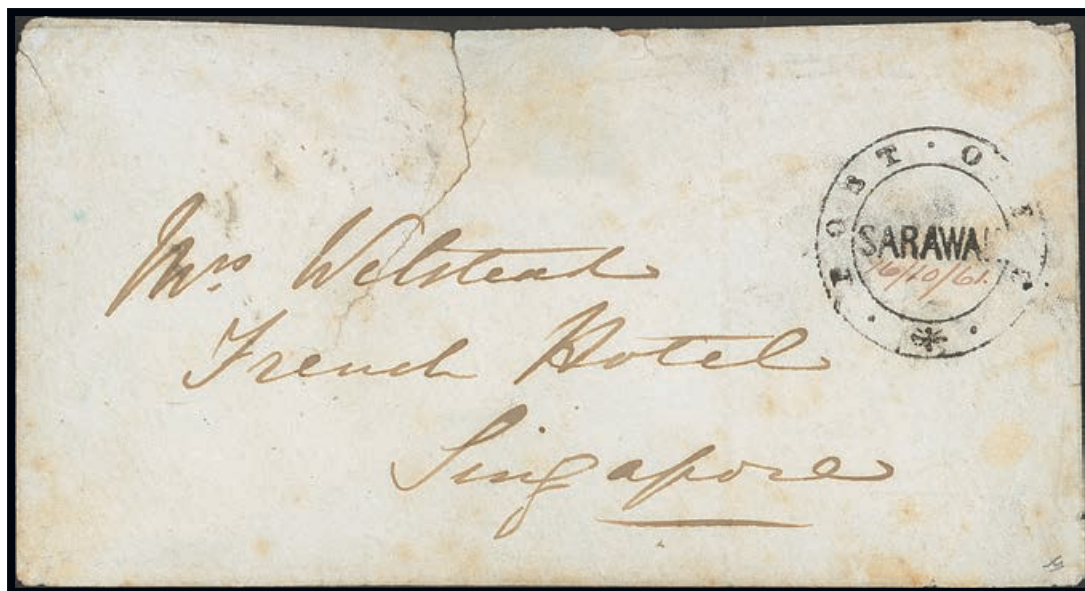 Mrs Welstead
French Hotel
Singapore
POST
SARAWAK
16/10/61.